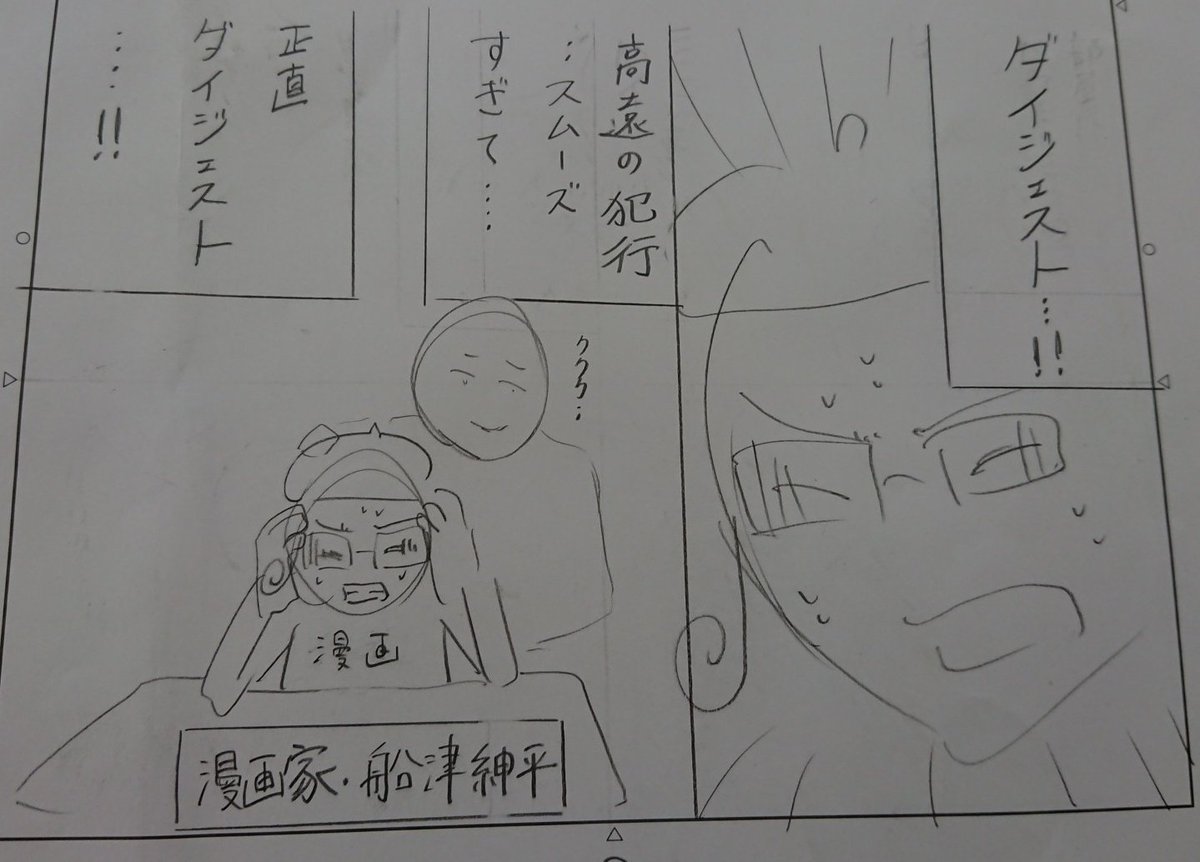 ダイジェスト…!!
高遠の犯行
…スムーズ
すぎて……
正直
ダイジェスト
……!!
ククク…
漫画
漫画家・船津紳平